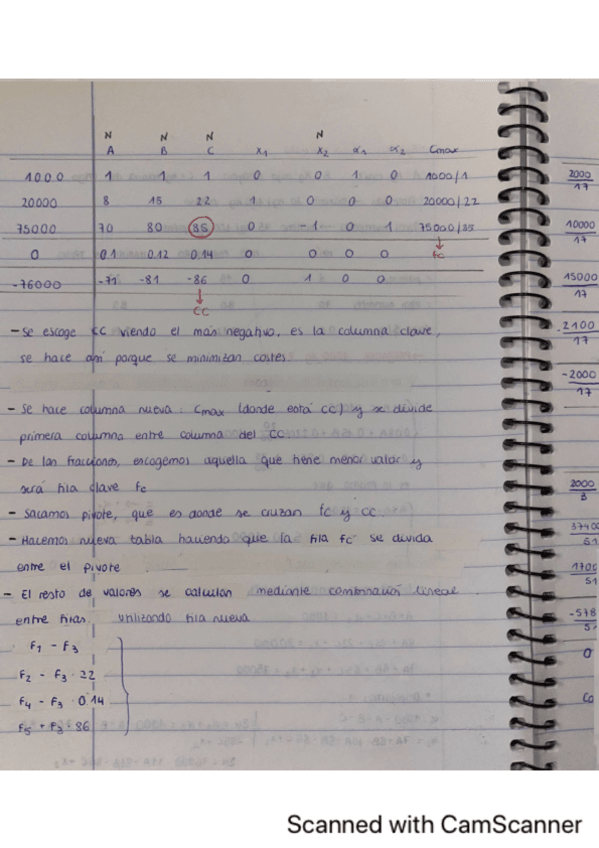 N N N N
A B C x₁ x₂ α₁ α₂ Cmax
1000 1 1 1 0 0 1 0 1000/1
20000 8 15 22 1 0 0 0 20000/22
75000 70 80 85 0 -1 0 1 75000/85
0 0.1 0.12 0.14 0 0 0 0 ↓ fc
-76000 -71 -81 -86 0 1 0 0
↓
CC
- Se escoge CC viendo el más negativo, es la columna clave,
se hace así porque se minimizan costes
- Se hace columna nueva: Cmax (donde está CC) y se divide
primera columna entre columna del CC
- De las fracciones, escogemos aquella que tiene menor valor y
será fila clave fc
- Sacamos pivote, que es donde se cruzan fc y CC
- Hacemos nueva tabla haciendo que la fila fc se divida
entre el pivote
- El resto de valores se calculan mediante combinación lineal
entre filas utilizando fila nueva
F₁ - F₃
F₂ - F₃ · 22
F₄ - F₃ · 0.14
F₅ + F₃ · 86
2000
17
10000
17
15000
17
2100
17
-2000
17
2000
3740
51
1700
51
-578
0
Scanned with CamScanner